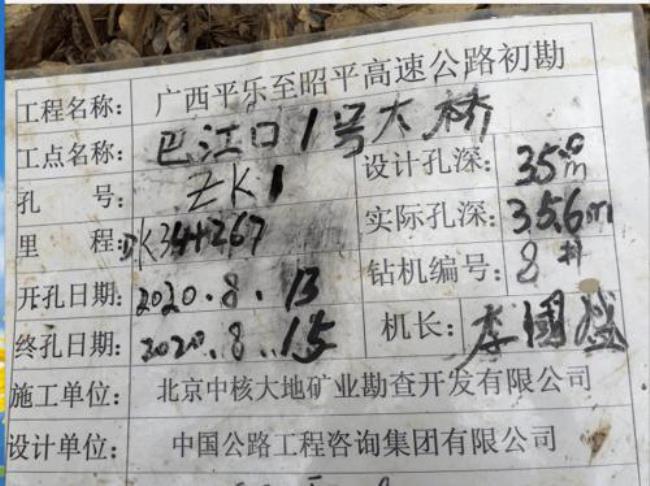 工程名称: 广西平乐至昭平高速公路初勘
工点名称: 巴江口1号大桥
孔 号: ZK1 设计孔深: 35.0m
里 程: DK34+267 实际孔深: 35.6m
钻机编号: 8#
开孔日期: 2020.8.13
终孔日期: 2020.8.15 机长: 李国盛
施工单位: 北京中核大地矿业勘查开发有限公司
设计单位: 中国公路工程咨询集团有限公司